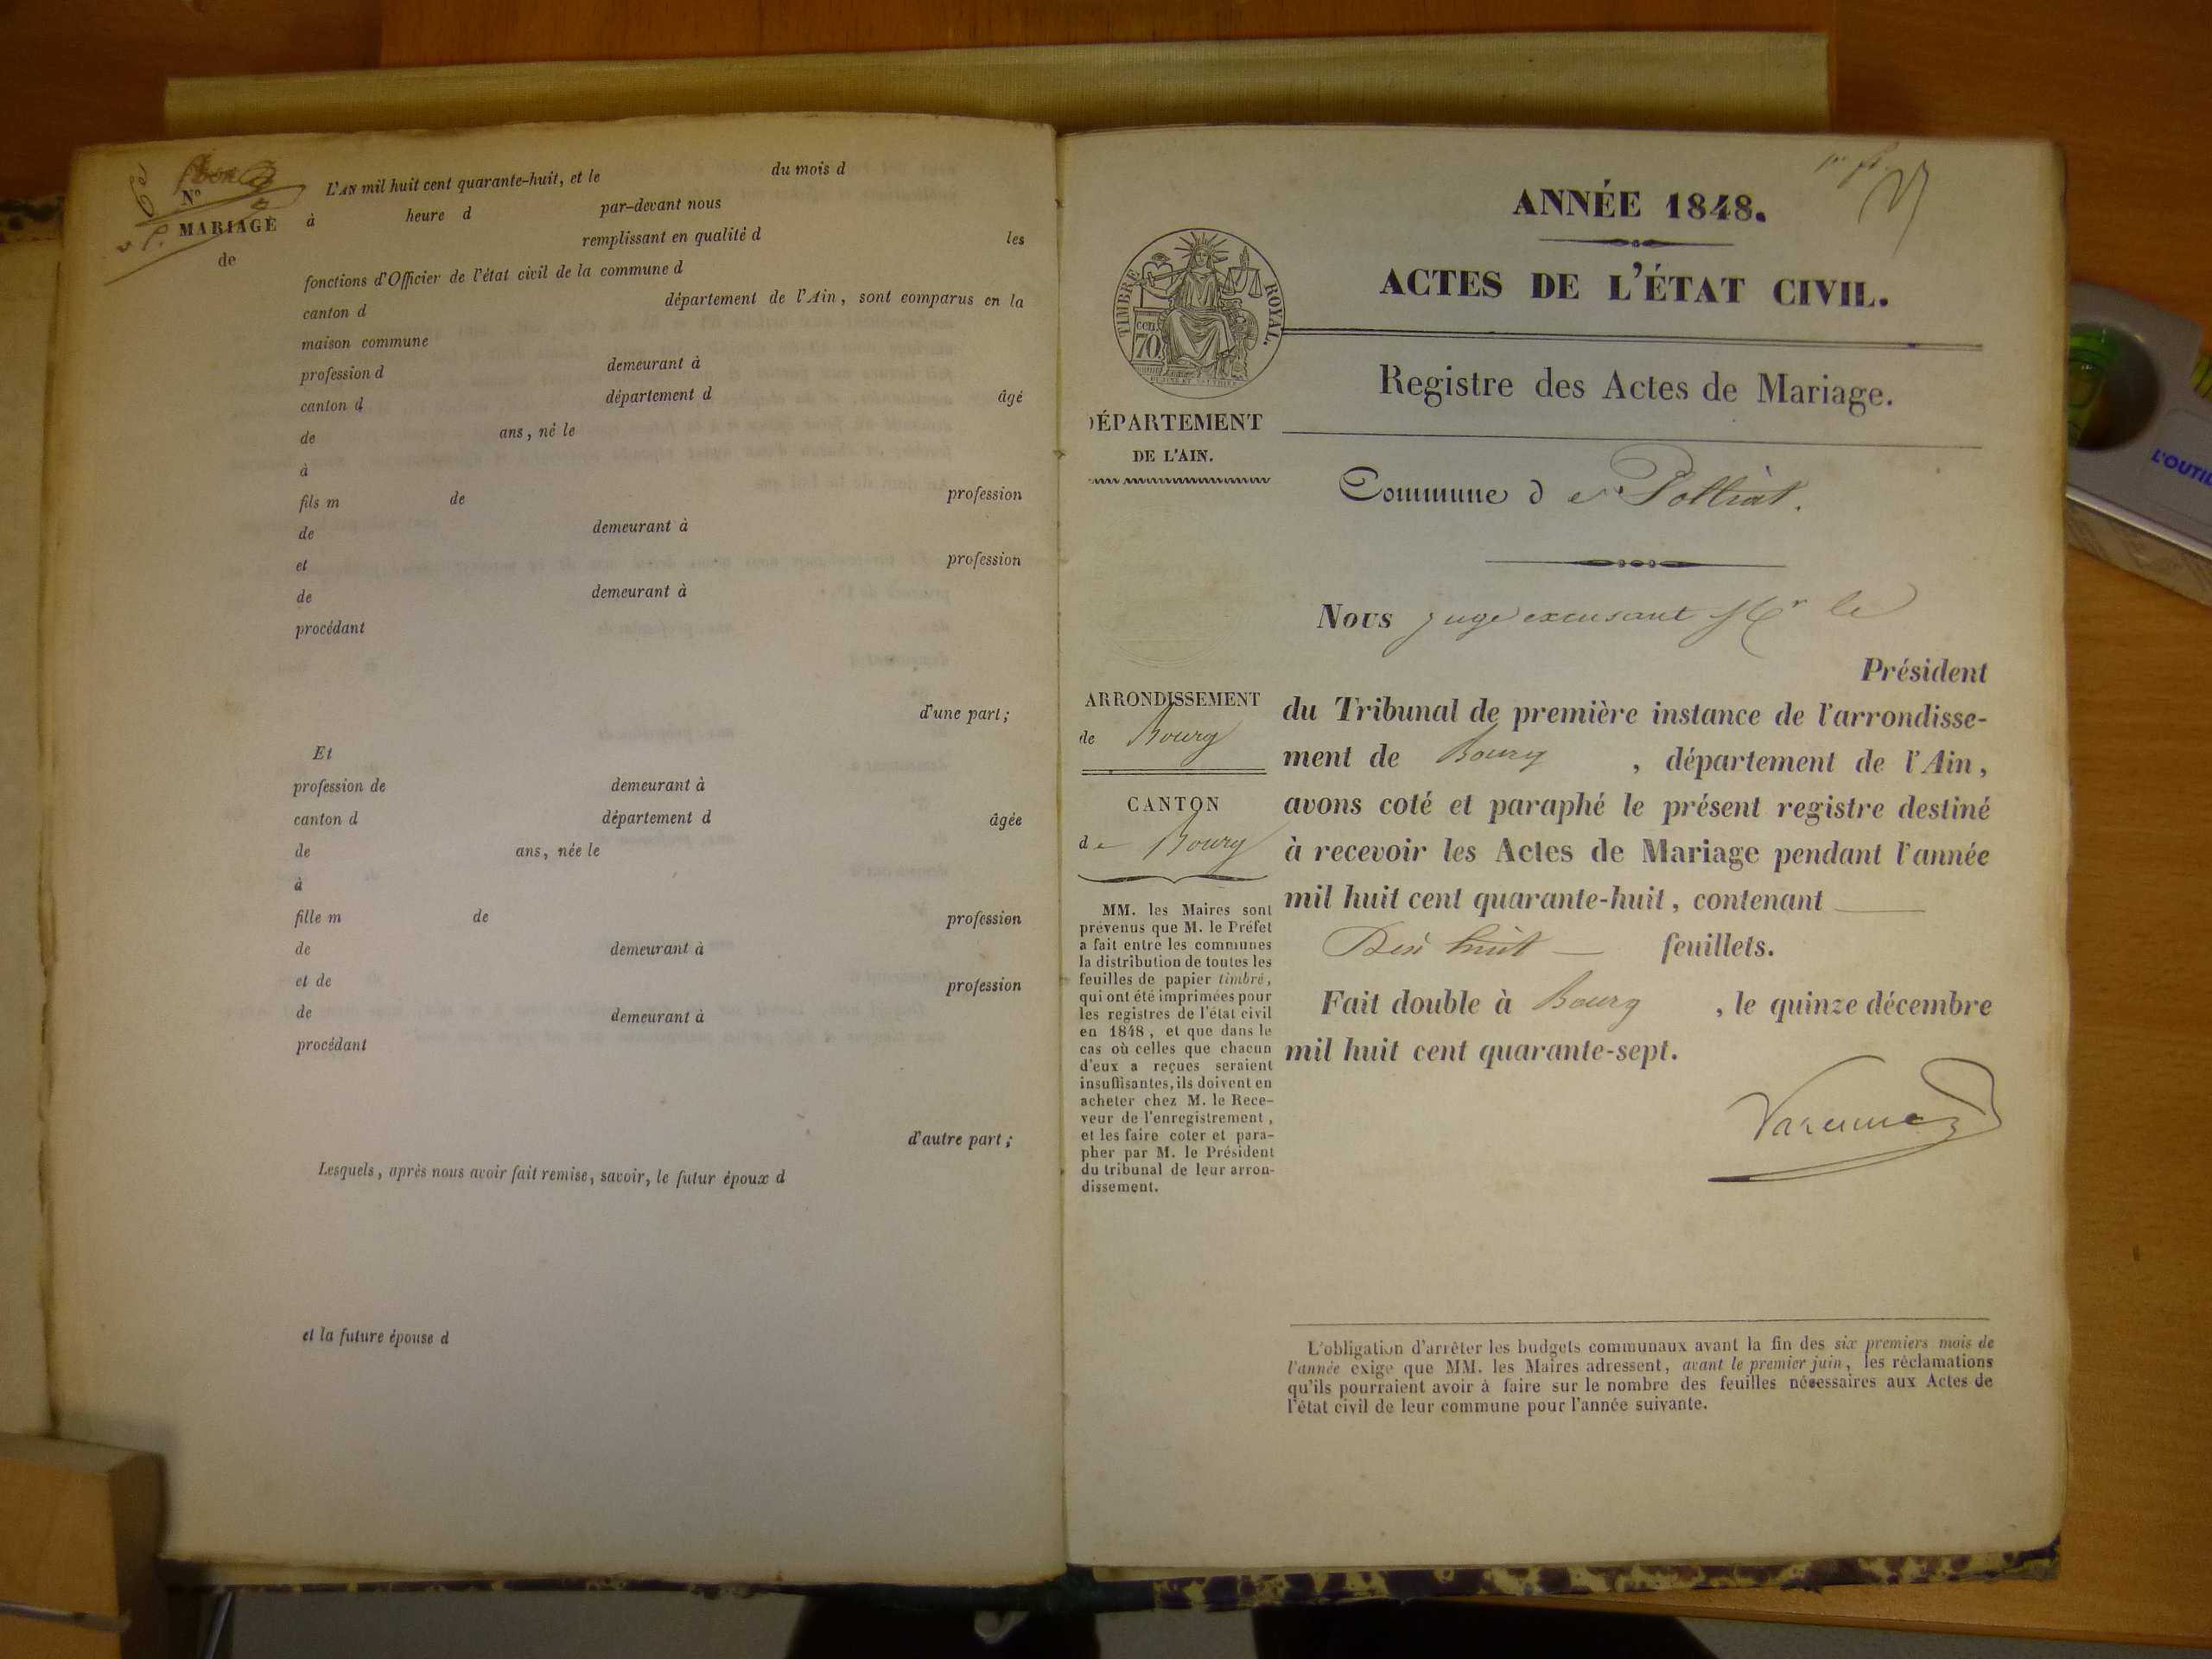 N°
MARIAGE
de
L'AN mil huit cent quarante-huit, et le du mois d
à heure d par-devant nous
remplissant en qualité d les
fonctions d'Officier de l'état civil de la commune d
canton d département de l'Ain, sont comparus en la
maison commune
profession d demeurant à
canton d département d âgé
de ans, né le
à
fils m de profession
de demeurant à
et profession
de demeurant à
procédant
d'une part;
Et
profession de demeurant à
canton d département d âgée
de ans, née le
à
fille m de profession
de demeurant à
et de profession
de demeurant à
procédant
d'autre part;
Lesquels, après nous avoir fait remise, savoir, le futur époux d
et la future épouse d
ANNÉE 1848.
ACTES DE L'ÉTAT CIVIL.
Registre des Actes de Mariage.
TIMBRE ROYAL.
cen.
70
DÉPARTEMENT
DE L'AIN.
Commune de Polliat.
Nous juge excusant Mr le
Président
du Tribunal de première instance de l'arrondisse-
ment de Bourg, département de l'Ain,
avons coté et paraphé le présent registre destiné
à recevoir les Actes de Mariage pendant l'année
mil huit cent quarante-huit, contenant
Dix huit feuillets.
Fait double à Bourg, le quinze décembre
mil huit cent quarante-sept.
ARRONDISSEMENT
de Bourg
CANTON
de Bourg
MM. les Maires sont
prévenus que M. le Préfet
a fait entre les communes
la distribution de toutes les
feuilles de papier timbré,
qui ont été imprimées pour
les registres de l'état civil
en 1848, et que dans le
cas où celles que chacun
d'eux a reçues seraient
insuffisantes, ils doivent en
acheter chez M. le Rece-
veur de l'enregistrement,
et les faire coter et para-
pher par M. le Président
du tribunal de leur arron-
dissement.
L'obligation d'arrêter les budgets communaux avant la fin des six premiers mois de
l'année exige que MM. les Maires adressent, avant le premier juin, les réclamations
qu'ils pourraient avoir à faire sur le nombre des feuilles nécessaires aux Actes de
l'état civil de leur commune pour l'année suivante.
L'OUTIL